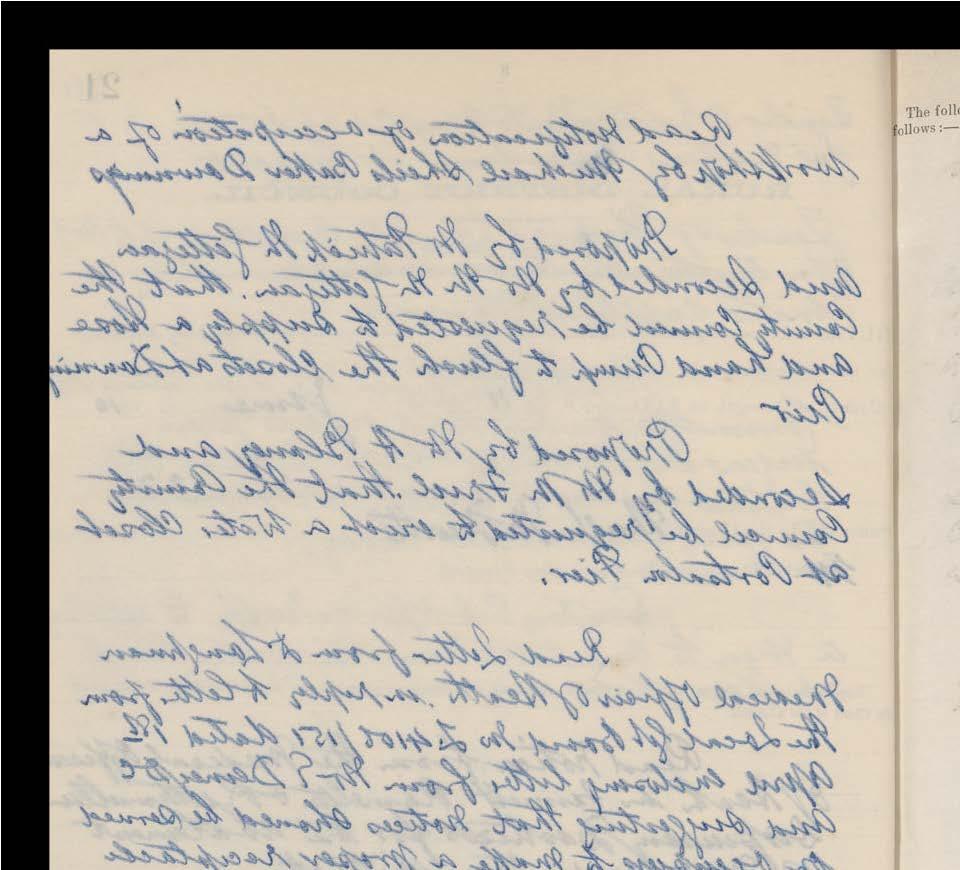 21
Read Notification of occupation of a
Workshop by Michael Sheils Baker Downings
Proposed by Mr Patrick Mc Gettigan
and Seconded by Mr M Mc Gettigan. that. the
County Council be requested to supply a Hose
and hand Pump to flush the Closets at Downings
Pier
Proposed by Mr H Blaney and
Seconded by Mr M Friel. that the County
Council be requested to erect a Water Closet
at Portsalon Pier.
Read Letter from Dr Loughman
Medical Officer of Health in reply to letter from
the Local Govt Board No dated 1st
April enclosing letter from Mr E
and suggesting that Notices should be served
on Occupiers to make a proper receptacle
The follo
follows:—